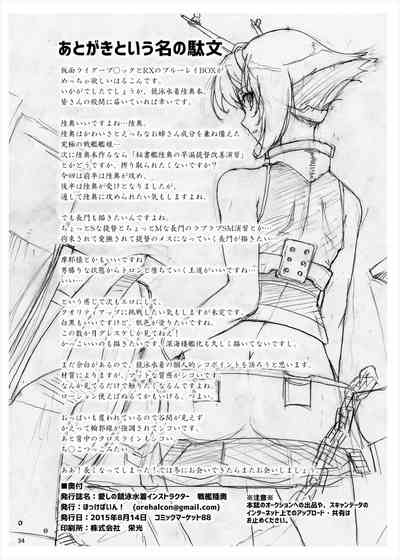 あとがきという名の駄文
仮面ライダーブ〇ックとRXのブルーレイBOXが
めっちゃ欲しいはるこんです。
いかがでしたでしょうか、競泳水着陸奥本、
皆さんの股間に響いていれば幸いです。
陸奥いいですよね…陸奥。
陸奥はかわいさとえっちなお姉さん成分を兼ね備えた
究極の戦艦艦娘…
次に陸奥本作るなら「秘書艦陸奥の早漏提督改善演習」
とかどうですか、搾り取られたくないですか?
今回は前半は陸奥が攻め、
後半は陸奥が受けとなりましたが、
通して陸奥に攻められたい気もしますよね。
でも長門も描きたいんですよね。
ちょっとSな提督とちょっとMな長門のラブラブSM演習とか…
拘束されて愛撫されて提督のメスになっていく長門が描きたい…
摩耶様とかもいいですよね
男勝りな状態からトロンと堕ちていく王道がいいですね…
いい…
という感じで次もエロにして、
クオリティアップに挑戦したい気もしますが未定です。
白黒もいいですけど、肌色が塗りたいですね。
この数か月グレスケしか見てねえ!
かっこいいのも描きたいです、深海棲艦化も久しく描いてないですし。
まだ余白があるので、競泳水着の個人的シコポイントを語ろうと思います。
材質によりますが、
なんか見てるだけで触りたくなるんですよね。
ローション使えばぬるてかもいける、つよい。
おっぱいも覆われているので谷間が見えず
かえって輪郭線が強調されてシコい。
あと背中のクロスラインもシコい。
ちこつっこみたい。
ああ!長くなってしまった!では冬にお会いできたらまたお会いしましょう。
■奥付
発行誌名:愛しの競泳水着インストラクター 戦艦陸奥
発行:ほっけばいん! (orehalcon@gmail.com)
発行日:2015年8月14日 コミックマーケット88
印刷所:株式会社 栄光
※注意※
本誌のオークションへの出品や、スキャンデータの
インターネット上でのアップロード・共有は
お止めください。
34